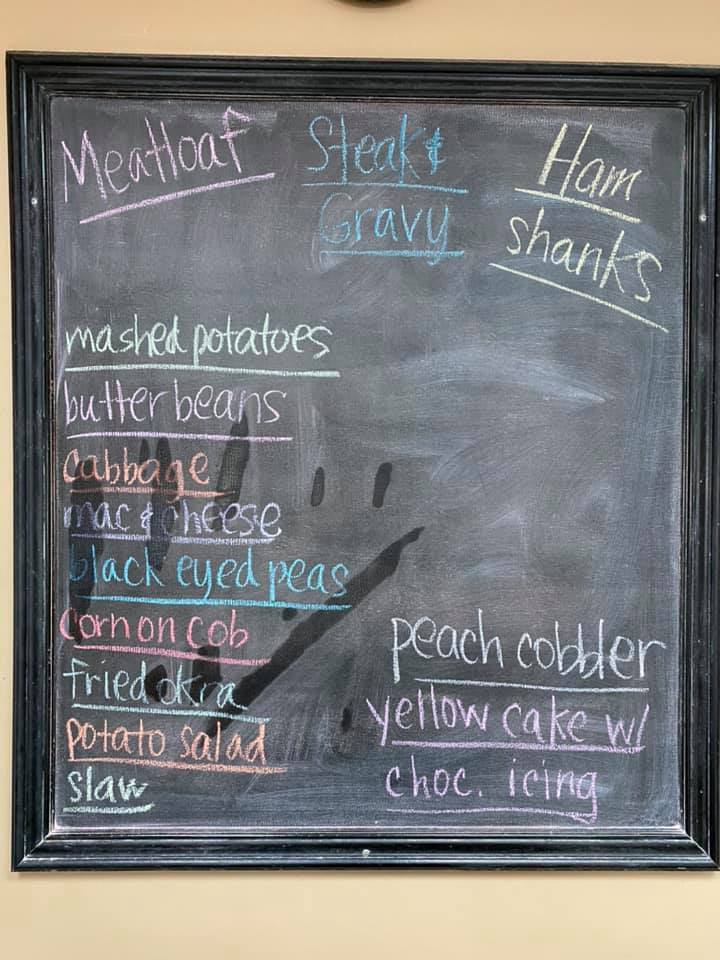 Meatloaf
Steak &
Gravy
Ham
shanks
mashed potatoes
butter beans
cabbage
mac & cheese
black eyed peas
corn on cob
fried okra
potato salad
slaw
peach cobbler
yellow cake w/
choc. icing